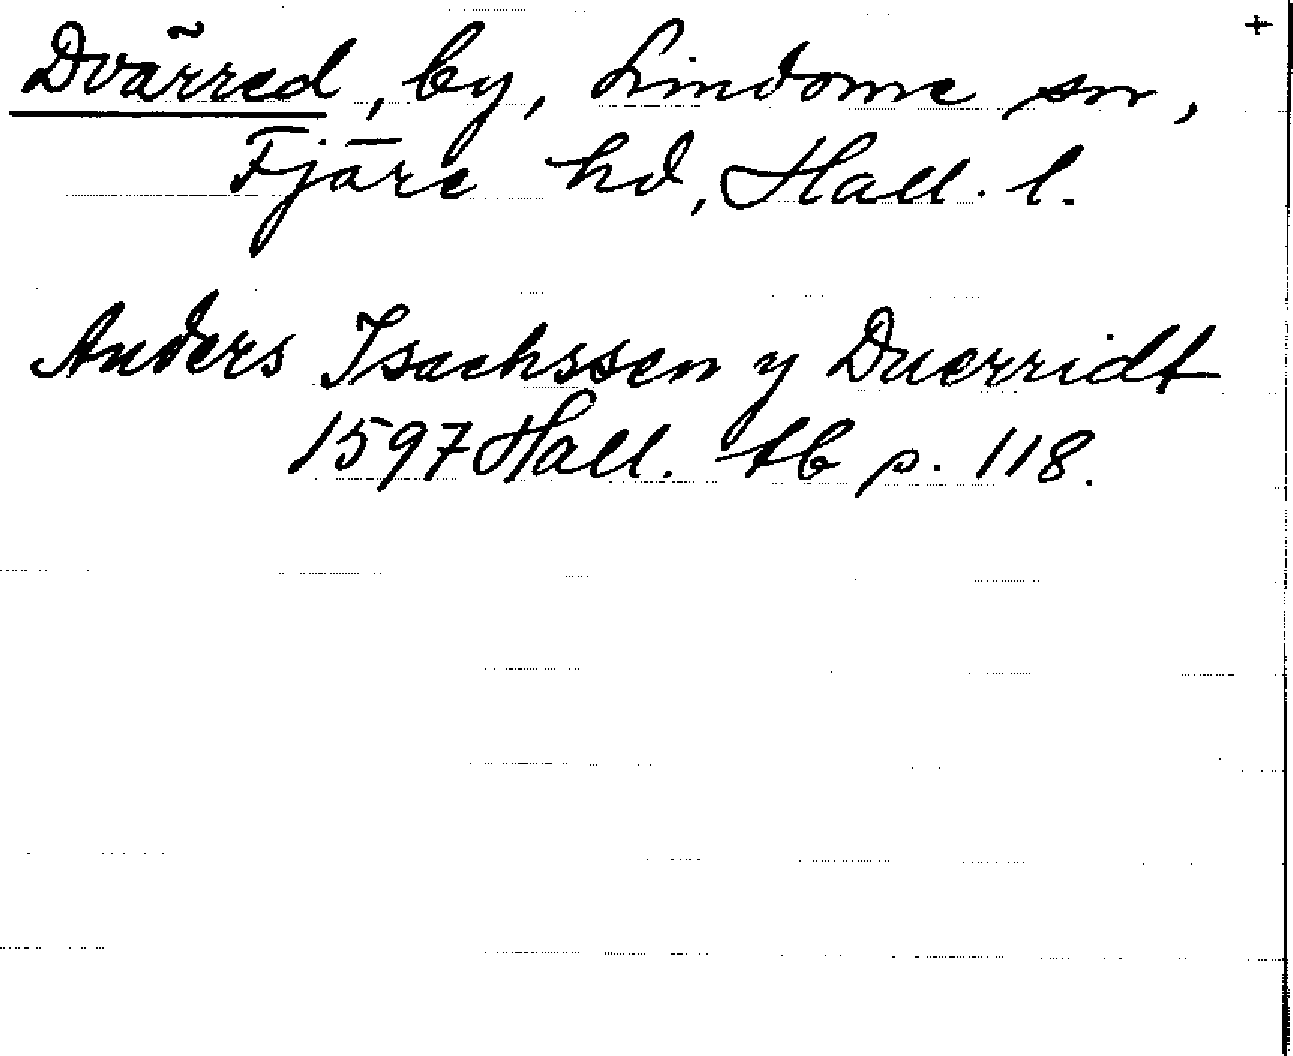 +
Dvärred, by, Lindome sn,
Fjäre hd, Hall. l.
Anders Isachssen y Duerridt
1597 Hall. tb p. 118.